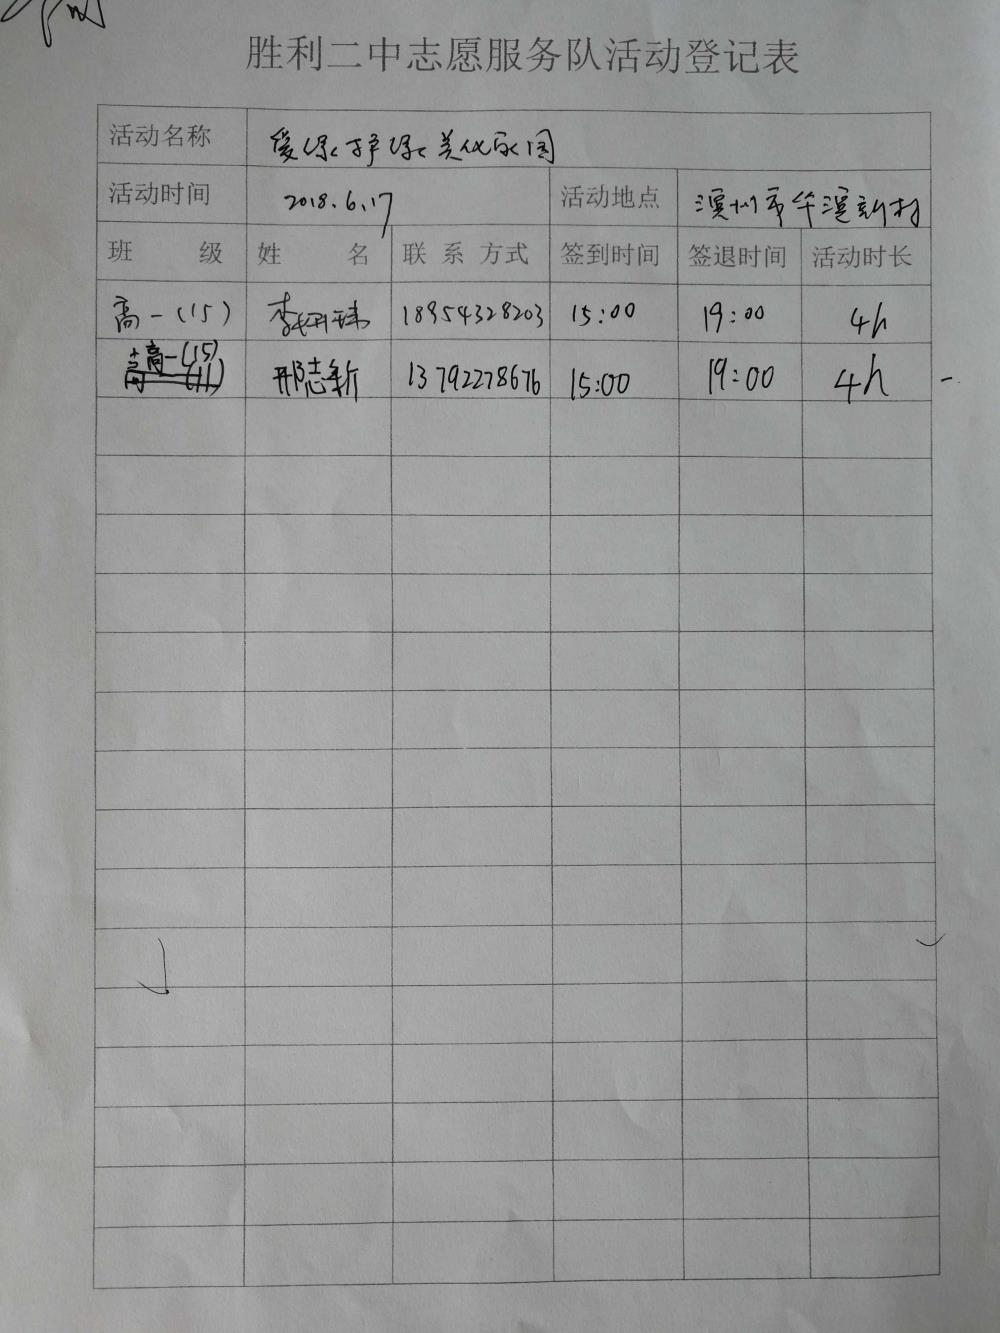 胜利二中志愿服务队活动登记表
活动名称 爱绿护绿美化家园
活动时间 2018.6.17 活动地点 滨州市华滨新村
班 级 姓 名 联 系 方式 签到时间 签退时间 活动时长
高一(15) 李 18954328203 15:00 19:00 4h
高一(15) 邢志新 13792278676 15:00 19:00 4h